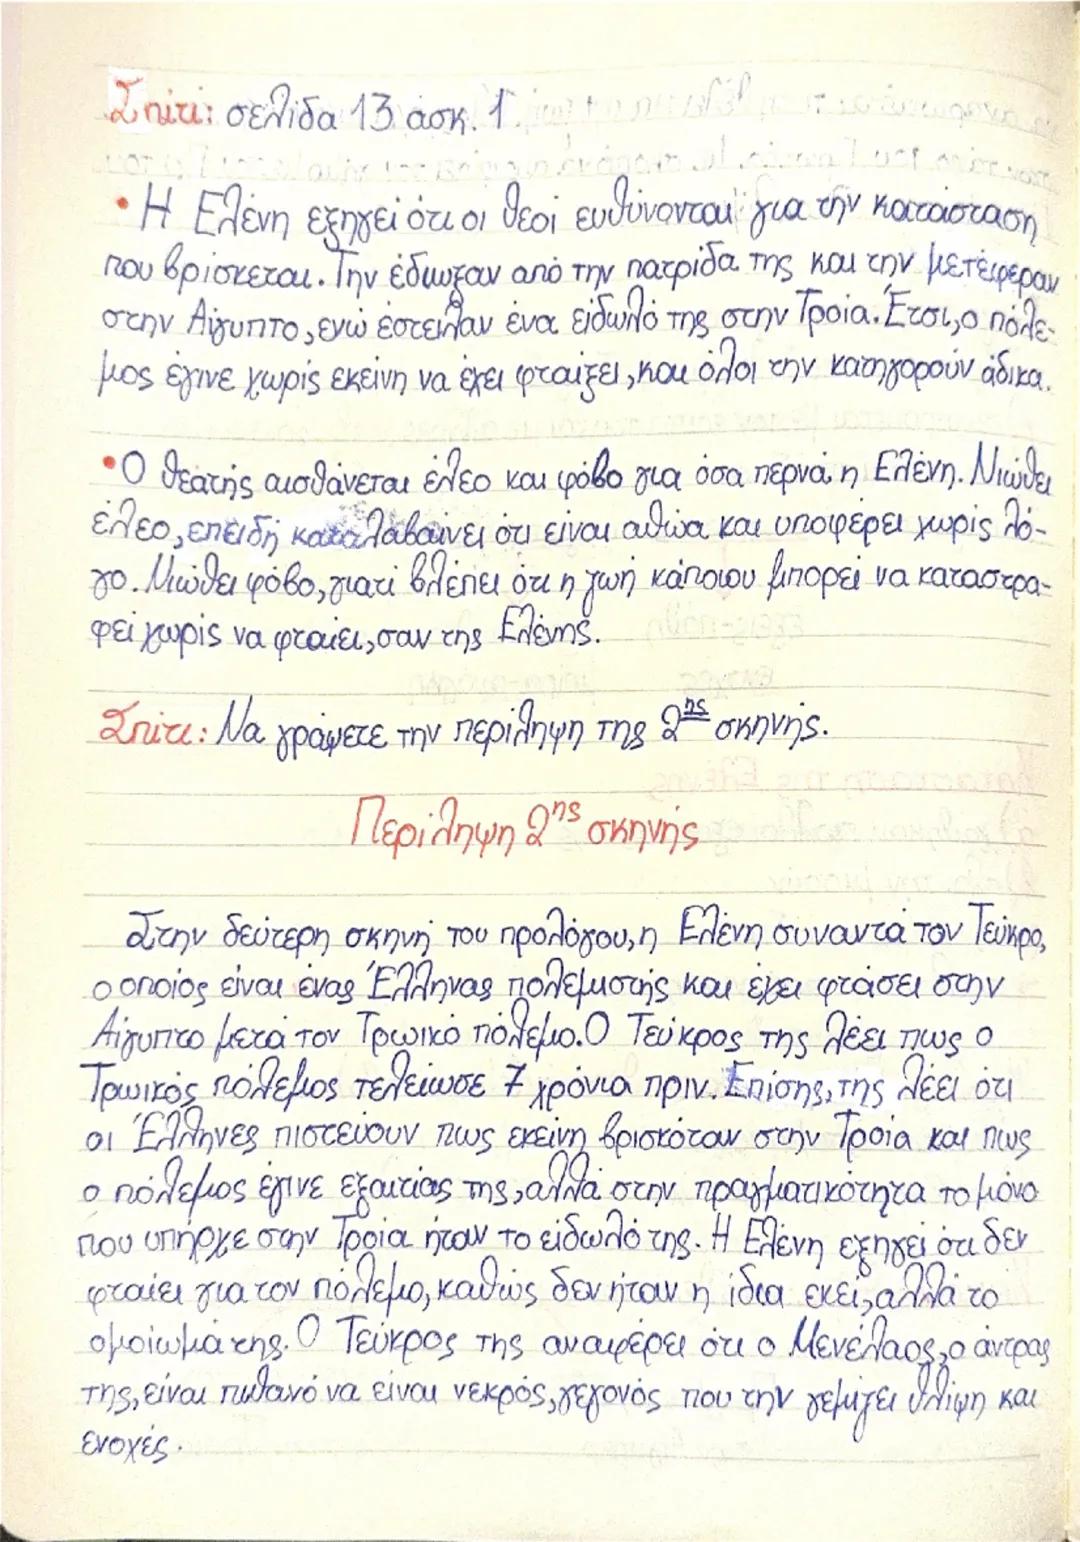 Σπίτι: σελίδα 13 ασκ. 1
• Η Ελένη εξηγεί ότι οι θεοί ευθύνονται για την κατάσταση
που βρίσκεται. Την έδιωξαν από την πατρίδα της και την μετέφεραν
στην Αίγυπτο, ενώ έστειλαν ένα είδωλό της στην Τροία. Έτσι, ο πόλε-
μος έγινε χωρίς εκείνη να έχει φταίξει, και όλοι την κατηγορούν άδικα.
• Ο θεατής αισθάνεται έλεο και φόβο για όσα περνά η Ελένη. Νιώθει
έλεο, επειδή καταλαβαίνει ότι είναι αθώα και υποφέρει χωρίς λό-
γο. Νιώθει φόβο, γιατί βλέπει ότι η ζωή κάποιου μπορεί να καταστρα-
φεί χωρίς να φταίει, σαν της Ελένης.
Σπίτι: Να γράψετε την περίληψη της 2ης σκηνής.
Περίληψη 2ης σκηνής
Στην δεύτερη σκηνή του προλόγου, η Ελένη συναντά τον Τεύκρο,
ο οποίος είναι ένας Έλληνας πολεμιστής και έχει φτάσει στην
Αίγυπτο μετά τον Τρωικό πόλεμο. Ο Τεύκρος της λέει πως ο
Τρωικός πόλεμος τελείωσε 7 χρόνια πριν. Επίσης, της λέει ότι
οι Έλληνες πιστεύουν πως εκείνη βρισκόταν στην Τροία και πως
ο πόλεμος έγινε εξαιτίας της, αλλά στην πραγματικότητα το μόνο
που υπήρχε στην Τροία ήταν το είδωλό της. Η Ελένη εξηγεί ότι δεν
φταίει για τον πόλεμο, καθώς δεν ήταν η ίδια εκεί, αλλά το
ομοίωμά της. Ο Τεύκρος της αναφέρει ότι ο Μενέλαος, ο άντρας
της, είναι πιθανό να είναι νεκρός, γεγονός που την γεμίζει θλίψη και
ενοχές.